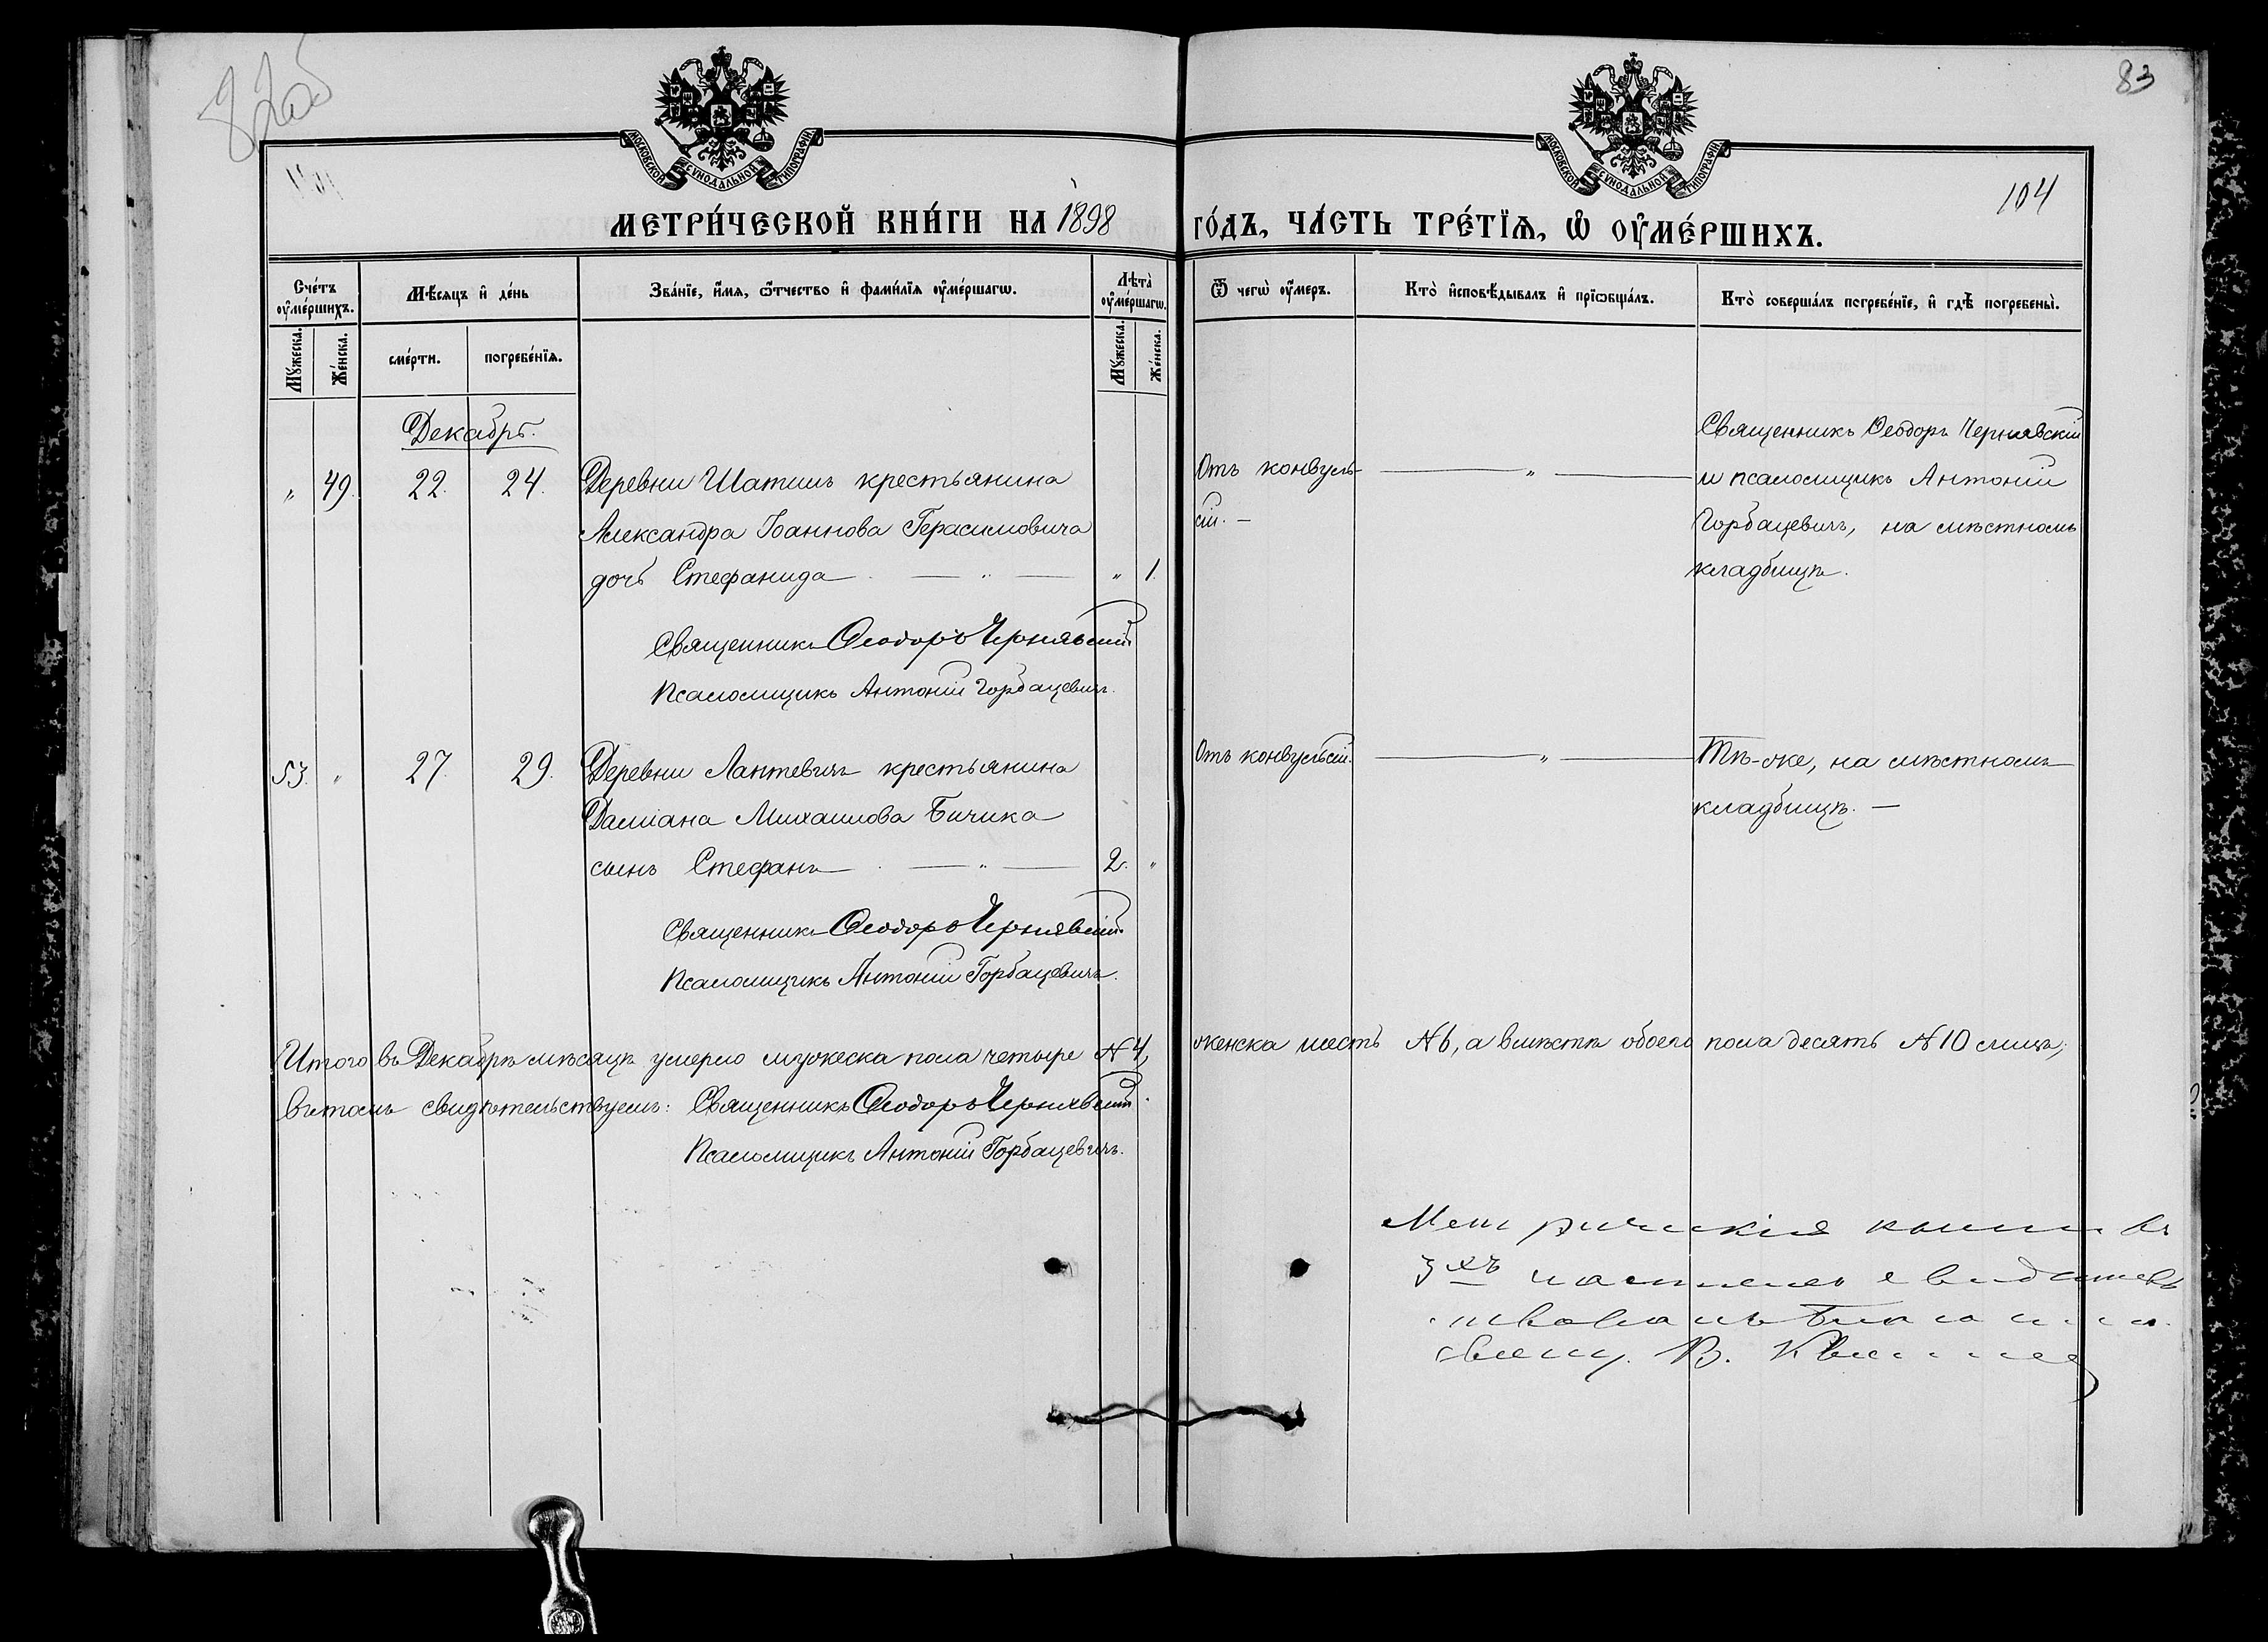 82об
83
МОСКОВСКОЙ СѴНОДАЛЬНОЙ ТИПОГРАФІИ
МОСКОВСКОЙ СѴНОДАЛЬНОЙ ТИПОГРАФІИ
104
МЕТРИ́ЧЕСКОЙ КНИ́ГИ НА 1898 ГО́ДЪ, ЧА́СТЬ ТРЕ́ТЇѦ, Ѽ ОУ҆МЕ́РШИХЪ.
Сче́тъ оу҆ме́ршихъ.
Мѣ́сяцъ и҆ де́нь
Зва́нїе, и҆́мя, ѻ҆́тчество и҆ фами́лїя оу҆ме́ршагѡ.
Лѣта̀ оу҆ме́ршагѡ.
Ѿ чегѡ̀ оу҆́меръ.
Кто̀ и҆сповѣ́дывалъ и҆ прїѡбща́лъ.
Кто̀ соверша́лъ погребе́нїе, и҆ гдѣ̀ погребены̀.
Му́жеска.
Же́нска.
сме́рти.
погребе́нїя.
Му́жеска.
Же́нска.
Декабрь.
" 49. 22. 24. Деревни Шатиль крестьянина
Александра Іоаннова Герасимовича
дочь Стефанида — " — " 1.
Отъ конвуль-
сіи. —
— " —
Священникъ Ѳеодоръ Чернявскій
и псаломщикъ Антоній
Горбацевичъ, на мѣстномъ
кладбищѣ.
Священникъ Ѳеодоръ Чернявскій
Псаломщикъ Антоній Горбацевичъ.
53. " 27. 29. Деревни Лаптевичъ крестьянина
Даміана Михаилова Бичика
сынъ Стефанъ — " — 2. "
Отъ конвульсій. — " — Тѣ-же, на мѣстномъ
кладбищѣ. —
Священникъ Ѳеодоръ Чернявскій
Псаломщикъ Антоній Горбацевичъ.
Итого въ Декабрѣ мѣсяцѣ умерло мужеска пола четыре № 4, женска шесть № 6, а вмѣстѣ обоего пола десять № 10 лицъ;
въ томъ свидѣтельствуемъ: Священникъ Ѳеодоръ Чернявскій.
Псаломщикъ Антоній Горбацевичъ.
Метрическія книги въ
3хъ частяхъ свидетель
свящ. В.